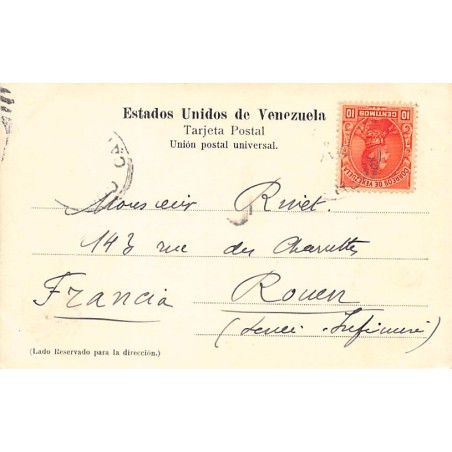 Estados Unidos de Venezuela
Tarjeta Postal
Unión postal universal.
10 CENTIMOS 10
CORREOS DE VENEZUELA
Monsieur Rivet.
143 rue des Charrettes
Francia Rouen
(Seine Inférieure)
(Lado Reservado para la dirección.)